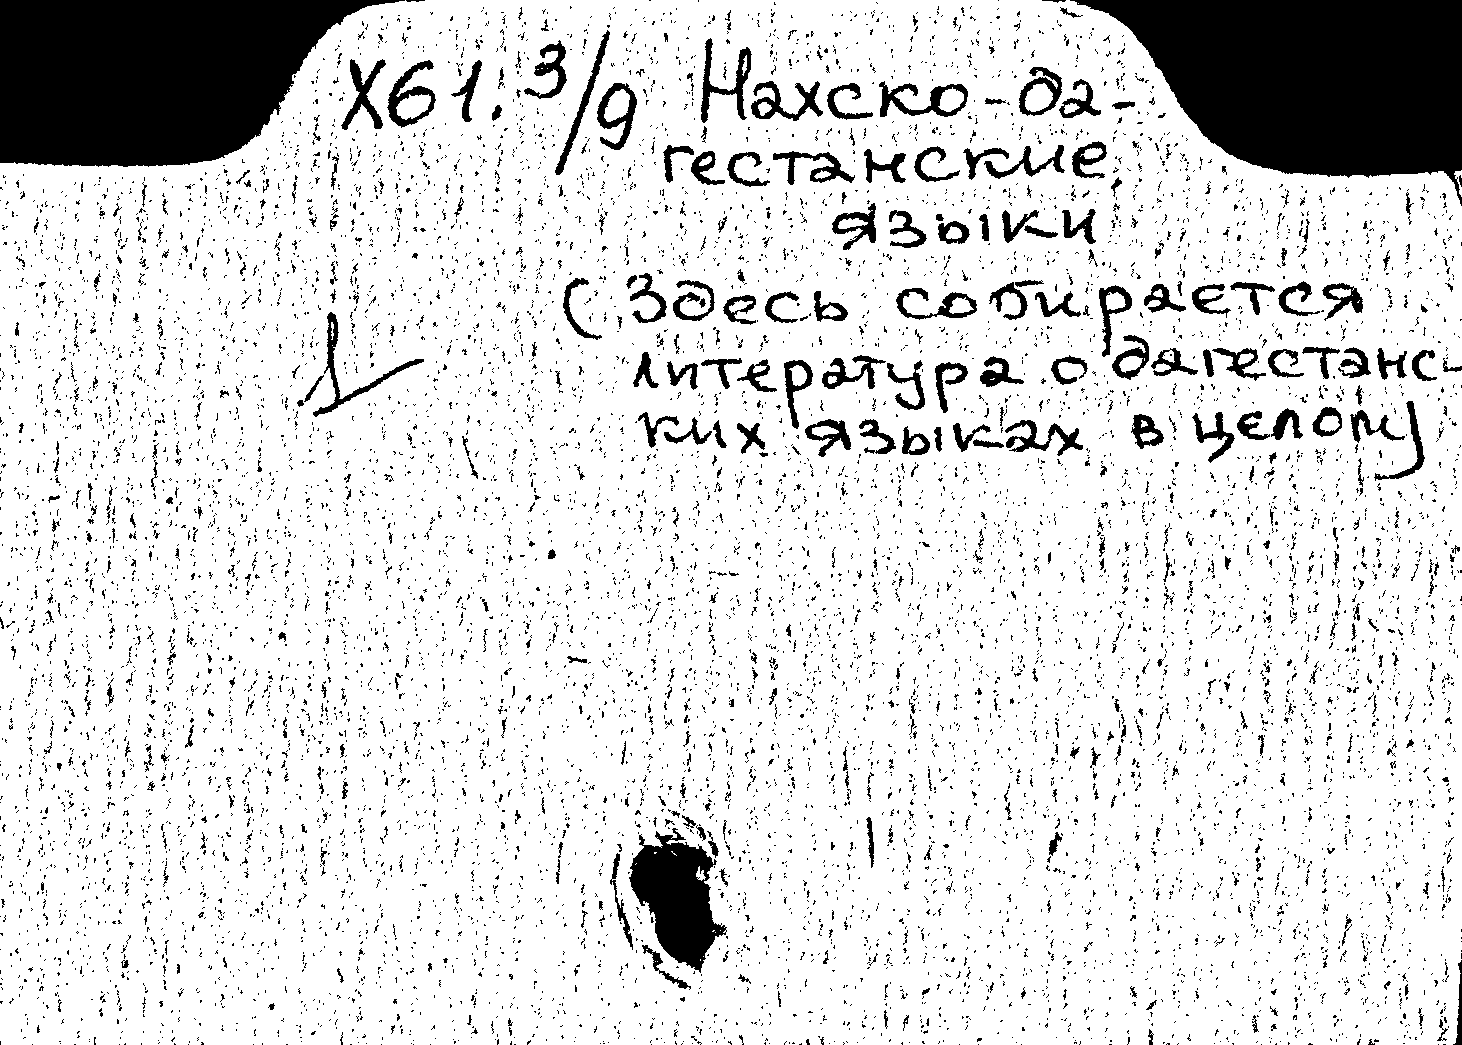 Х61.3/9 Нахско-да-
гестанские
языки
(Здесь собирается
литература о дагестанс-
ких языках в целом)
1